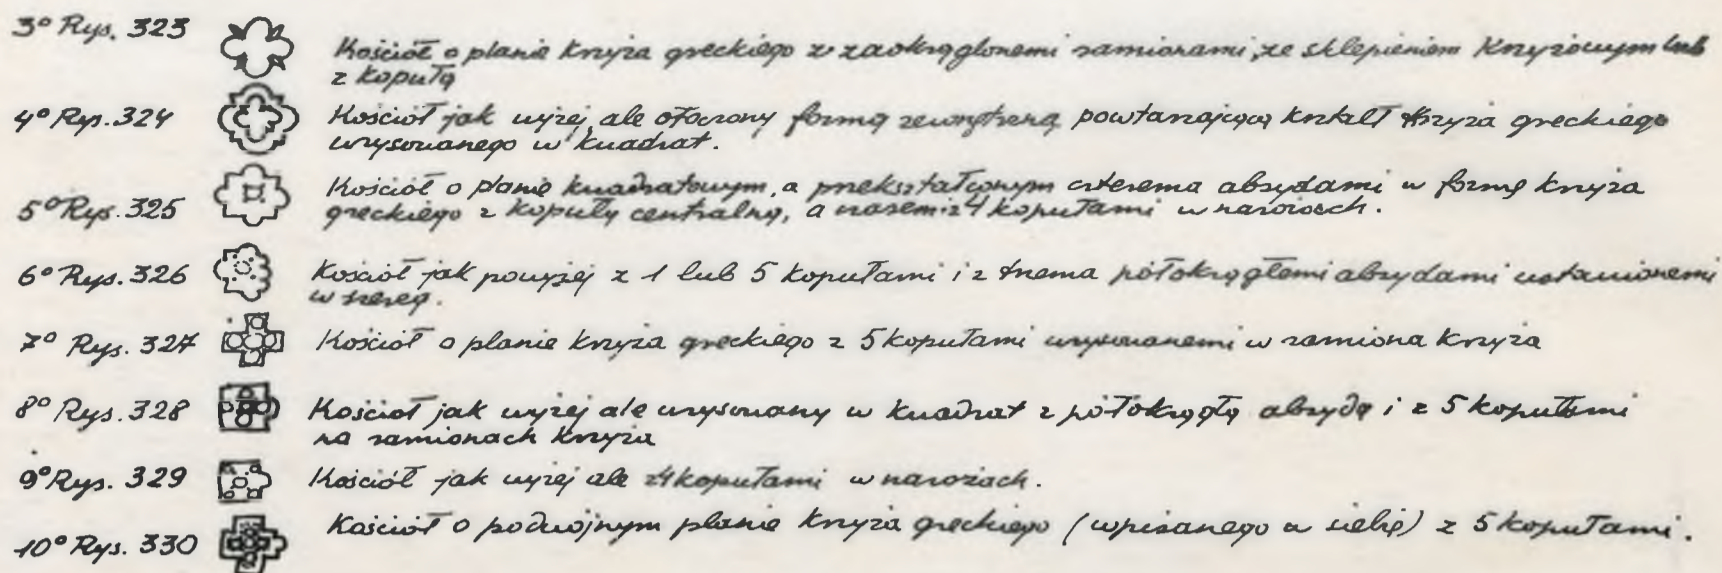 3° Rys. 323 Kościół o planie krzyża greckiego z zaokrąglonemi ramionami, ze sklepieniem krzyżowym lub
z kopułą
4° Rys. 324 Kościół jak wyżej, ale otoczony formą zewnętrzną powtarzającą kształt krzyża greckiego
wrysowanego w kwadrat.
5° Rys. 325 Kościół o planie kwadratowym, a przekształconym czterema absydami w formę krzyża
greckiego z kopułą centralną, a razem z 4 kopułami w narożach.
6° Rys. 326 Kościół jak powyżej z 1 lub 5 kopułami i z trzema półokrągłemi absydami ustawionemi
w szereg.
7° Rys. 327 Kościół o planie krzyża greckiego z 5 kopułami wrysowanemi w ramiona krzyża
8° Rys. 328 Kościół jak wyżej ale wrysowany w kwadrat z półokrągłą absydą i z 5 kopułami
na ramionach krzyża
9° Rys. 329 Kościół jak wyżej ale z 4 kopułami w narożach.
10° Rys. 330 Kościół o podwójnym planie krzyża greckiego (wpisanego w siebie) z 5 kopułami.